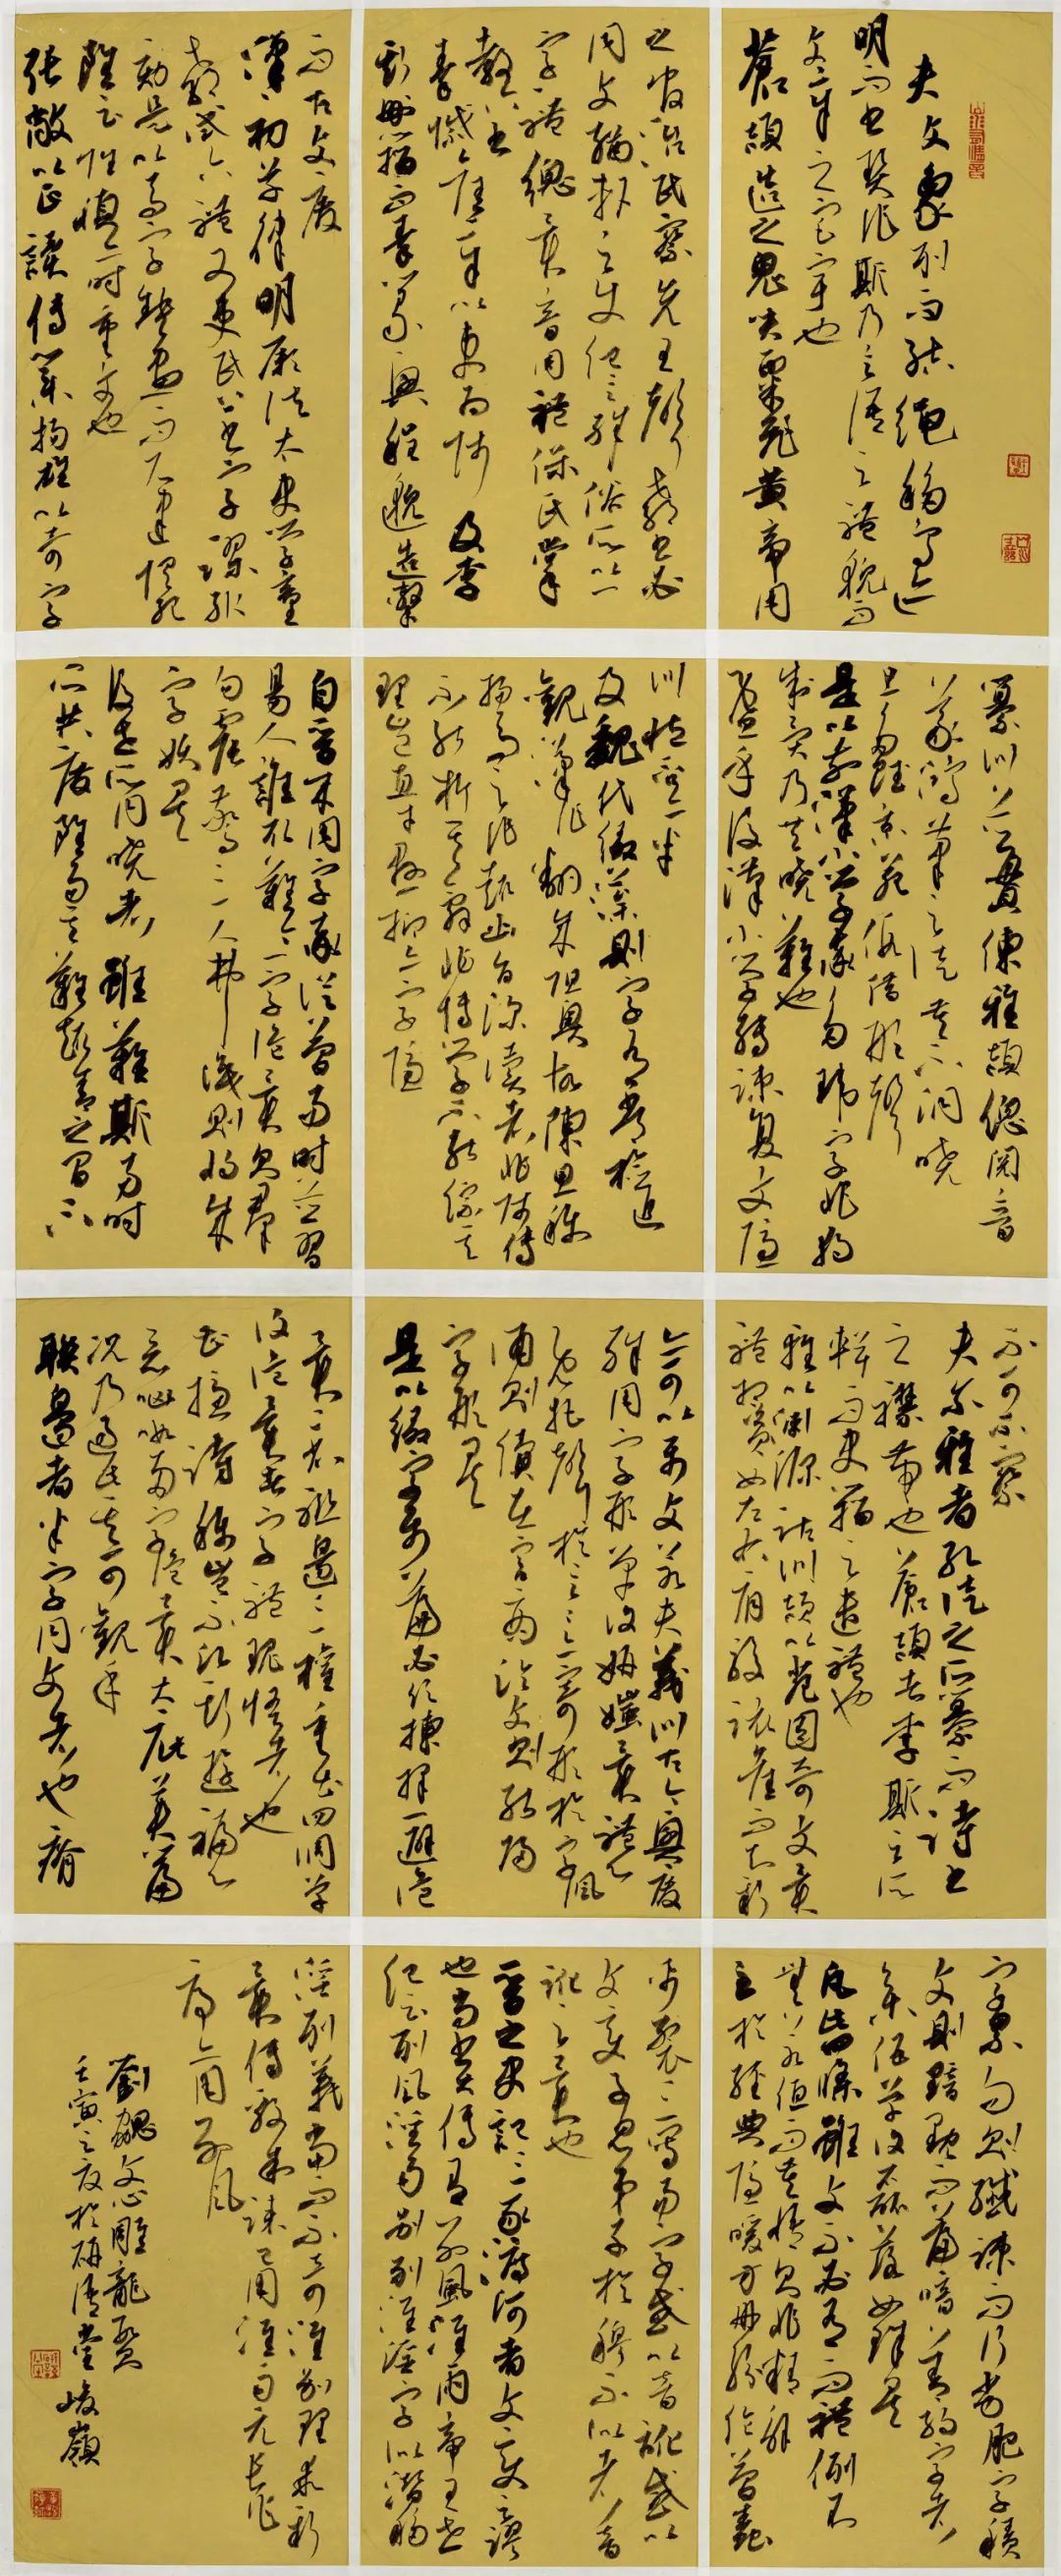 夫文象列而結繩移鳥迹
明而書契作斯乃言語之體貌而
文章之宅宇也
蒼頡造之鬼哭粟飛黃帝用
之官治民察先王聲教書必
同文輶軒之使紀言殊俗所以一
字體總異音周禮保氏掌
教六書
秦滅舊章以吏為師及李
斯刪籀而秦篆興程邈造隸
而古文廢
漢初草律明厥法太史學童
教試六體又吏民上書字謬輒
劾是以馬字缺畫而石建懼死
雖云性慎亦時重文也
張敞以正讀傳業揚雄以奇字
纂訓並貫練雅頌總閱音
義鴻筆之徒莫不洞曉
且多賦京苑假借形聲
是以前漢小學率多瑋字非獨
制異乃共曉難也
暨乎後漢小學轉疏復文隱
訓臧否大半
及魏代綴藻則字有常檢追
觀漢作翻成阻奧故陳思稱
揚馬之作趣幽旨深讀者非師傳
不能析其辭非博學不能綜其
理豈直才懸抑亦字隱
自晉來用字率從簡易時並習
易人誰取難今一字詭異則群
句震驚三人弗識則將成
字妖矣
後世所同曉者雖難斯易時
所共廢雖易斯難趣舍之間不
可不可不察
夫爾雅者孔徒之所纂而詩書
之襟帶也蒼頡者李斯之所
輯而史籀之遺體也
雅以淵源詁訓頡以苑囿奇文異
體相資如左右肩股該舊而知新
亦可以屬文若夫義訓古今興廢
殊用字形單復妍媸異體心
既托聲於言言寄形於字諷
誦則績在宮商臨文則能歸
字形矣
是以綴字屬篇必須揀擇一避詭
異二省聯邊三權重出四調單
復詭異者字體瑰怪者也
曹攄詩稱豈不願斯遊褊心
惡呐呶兩字詭異大疵美篇
況乃過此其可觀乎
聯邊者半字同文者也瘠
字累句則纖疏而行劣肥字積
文則黯黕而篇暗善酌字者
參伍單復磊落如珠矣
凡此四條雖文不必有而體例不
無若值而莫悟則非精解
至於經典隱曖方冊紛綸簡蠹
帛裂三寫易字或以音訛或以
文變子思弟子於穆不似者音
訛之異也
晉之史記三豕渡河者文變之謬
也尚書大傳有別風淮雨帝王世
紀云列風淫雨別列淮淫字似潛移
淫列義當而不奇淮別理乖新
異傅毅制誄已用淮雨元長作
序亦用別風
劉勰文心雕龍監
壬寅之夜於硯清堂 峻嶺